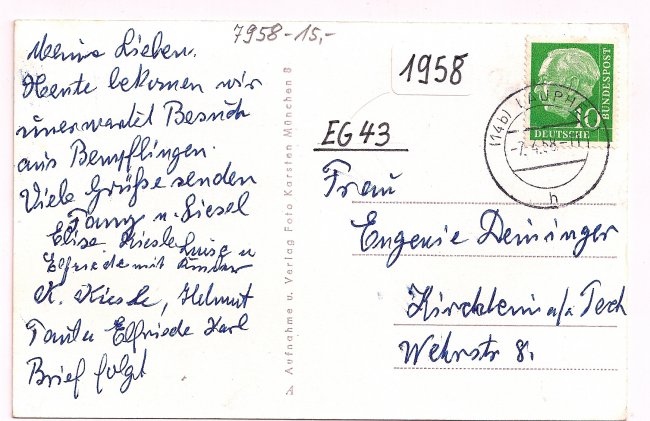 7958-15,-
1958
EG 43
Meine Lieben.
Heute bekomen wir
unerwartet Besuch
aus Bempflingen.
Viele Grüße senden
Fanny u. Liesel
Elise Kiesle Luise u
Elfriede mit Kinder
K. Kiesle, Helmut
Tante Elfriede Karl
Brief folgt
A Aufnahme u. Verlag Foto Karsten München 8
BUNDESPOST
10
DEUTSCHE
(14b) LAUPH
-7.4.58-
h
Frau
Eugenie Deininger
Kirchheim a/a Teck
Wehrstr 8.